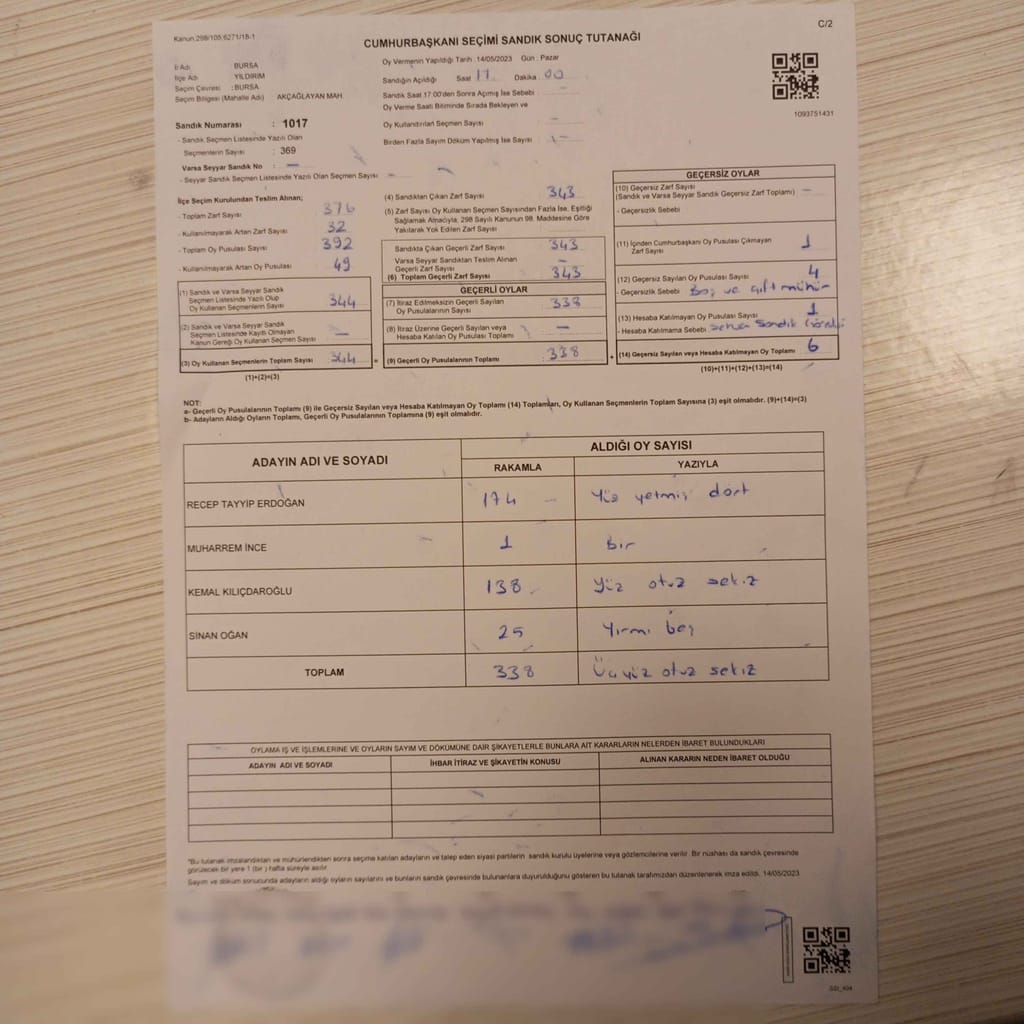 C/2
Kanun 298/105,6271/18-1
CUMHURBAŞKANI SEÇİMİ SANDIK SONUÇ TUTANAĞI
İl Adı BURSA
İlçe Adı YILDIRIM
Seçim Çevresi : BURSA
Seçim Bölgesi (Mahalle Adı) : AKÇAĞLAYAN MAH.
Sandık Numarası : 1017
- Sandık Seçmen Listesinde Yazılı Olan
Seçmenlerin Sayısı : 369
Varsa Seyyar Sandık No : –
- Seyyar Sandık Seçmen Listesinde Yazılı Olan Seçmen Sayısı : –
Oy Vermenin Yapıldığı Tarih : 14/05/2023 Gün : Pazar
Sandığın Açıldığı Saat 17 Dakika : 00
Sandık Saat 17:00'den Sonra Açımış İse Sebebi :
Oy Verme Saati Bitiminde Sırada Bekleyen ve
Oy Kullandırılan Seçmen Sayısı –
Birden Fazla Sayım Döküm Yapılmış İse Sayısı : –
1093751431
İlçe Seçim Kurulundan Teslim Alınan;
- Toplam Zarf Sayısı 376
- Kullanılmayarak Artan Zarf Sayısı 32
- Toplam Oy Pusulası Sayısı 392
- Kullanılmayarak Artan Oy Pusulası 49
(1) Sandık ve Varsa Seyyar Sandık
Seçmen Listesinde Yazılı Olup
Oy Kullanan Seçmenlerin Sayısı 344
(2) Sandık ve Varsa Seyyar Sandık
Seçmen Listesinde Kayıtlı Olmayan
Kanun Gereği Oy Kullanan Seçmen Sayısı –
(3) Oy Kullanan Seçmenlerin Toplam Sayısı 344 =
(1)+(2)=(3)
(4) Sandıktan Çıkan Zarf Sayısı 343
(5) Zarf Sayısı Oy Kullanan Seçmen Sayısından Fazla İse, Eşitliği
Sağlamak Amacıyla, 298 Sayılı Kanunun 98. Maddesine Göre
Yakılarak Yok Edilen Zarf Sayısı
Sandıkta Çıkan Geçerli Zarf Sayısı 343
Varsa Seyyar Sandıktan Teslim Alınan
Geçerli Zarf Sayısı –
(6) Toplam Geçerli Zarf Sayısı 343
GEÇERLİ OYLAR
(7) İtiraz Edilmeksizin Geçerli Sayılan
Oy Pusulasının Sayısı : 338
(8) İtiraz Üzerine Geçerli Sayılan veya
Hesaba Katılan Oy Pusulası Sayısı : –
(9) Geçerli Oy Pusulalarının Toplamı : 338 +
GEÇERSİZ OYLAR
(10) Geçersiz Zarf Sayısı
(Sandık ve Varsa Seyyar Sandık Geçersiz Zarf Toplamı) –
- Geçersizlik Sebebi
(11) İçinden Cumhurbaşkanı Oy Pusulası Çıkmayan
Zarf Sayısı 1
(12) Geçersiz Sayılan Oy Pusulası Sayısı 4
- Geçersizlik Sebebi : Boş ve çift mühür
(13) Hesaba Katılmayan Oy Pusulası Sayısı 1
- Hesaba Katılmama Sebebi : Sandık
(14) Geçersiz Sayılan veya Hesaba Katılmayan Oy Toplamı 6
(10)+(11)+(12)+(13)=(14)
NOT:
a- Geçerli Oy Pusulalarının Toplamı (9) ile Geçersiz Sayılan veya Hesaba Katılmayan Oy Toplamı (14) Toplamları, Oy Kullanan Seçmenlerin Toplam Sayısına (3) eşit olmalıdır. (9)+(14)=(3)
b- Adayların Aldığı Oyların Toplamı, Geçerli Oy Pusulalarının Toplamına (9) eşit olmalıdır.
ADAYIN ADI VE SOYADI ALDIĞI OY SAYISI
RAKAMLA YAZIYLA
RECEP TAYYİP ERDOĞAN 174 Yüz yetmiş dört
MUHARREM İNCE 1 bir
KEMAL KILIÇDAROĞLU 138 Yüz otuz sekiz
SİNAN OĞAN 25 Yirmi beş
TOPLAM 338 Üçyüz otuz sekiz
OYLAMA İŞ VE İŞLEMLERİNE VE OYLARIN SAYIM VE DÖKÜMÜNE DAİR ŞİKAYETLERLE BUNLARA AİT KARARLARIN NELERDEN İBARET BULUNDUKLARI
ADAYIN ADI VE SOYADI İHBAR İTİRAZ VE ŞİKAYETİN KONUSU ALINAN KARARIN NEDEN İBARET OLDUĞU
*Bu tutanak imzalandıktan ve mühürlendikten sonra seçime katılan adayların ve talep eden siyasi partilerin sandık kurulu üyelerine veya gözlemcilerine verilir. Bir nüshası da sandık çevresinde
görülecek bir yere 1 (bir) hafta süreyle asılır.
Sayım ve döküm sonucunda adayların aldığı oyların sayılarını ve bunların sandık çevresinde bulunanlara duyurulduğunu gösteren bu tutanak tarafımızdan düzenlenerek imza edildi. 14/05/2023